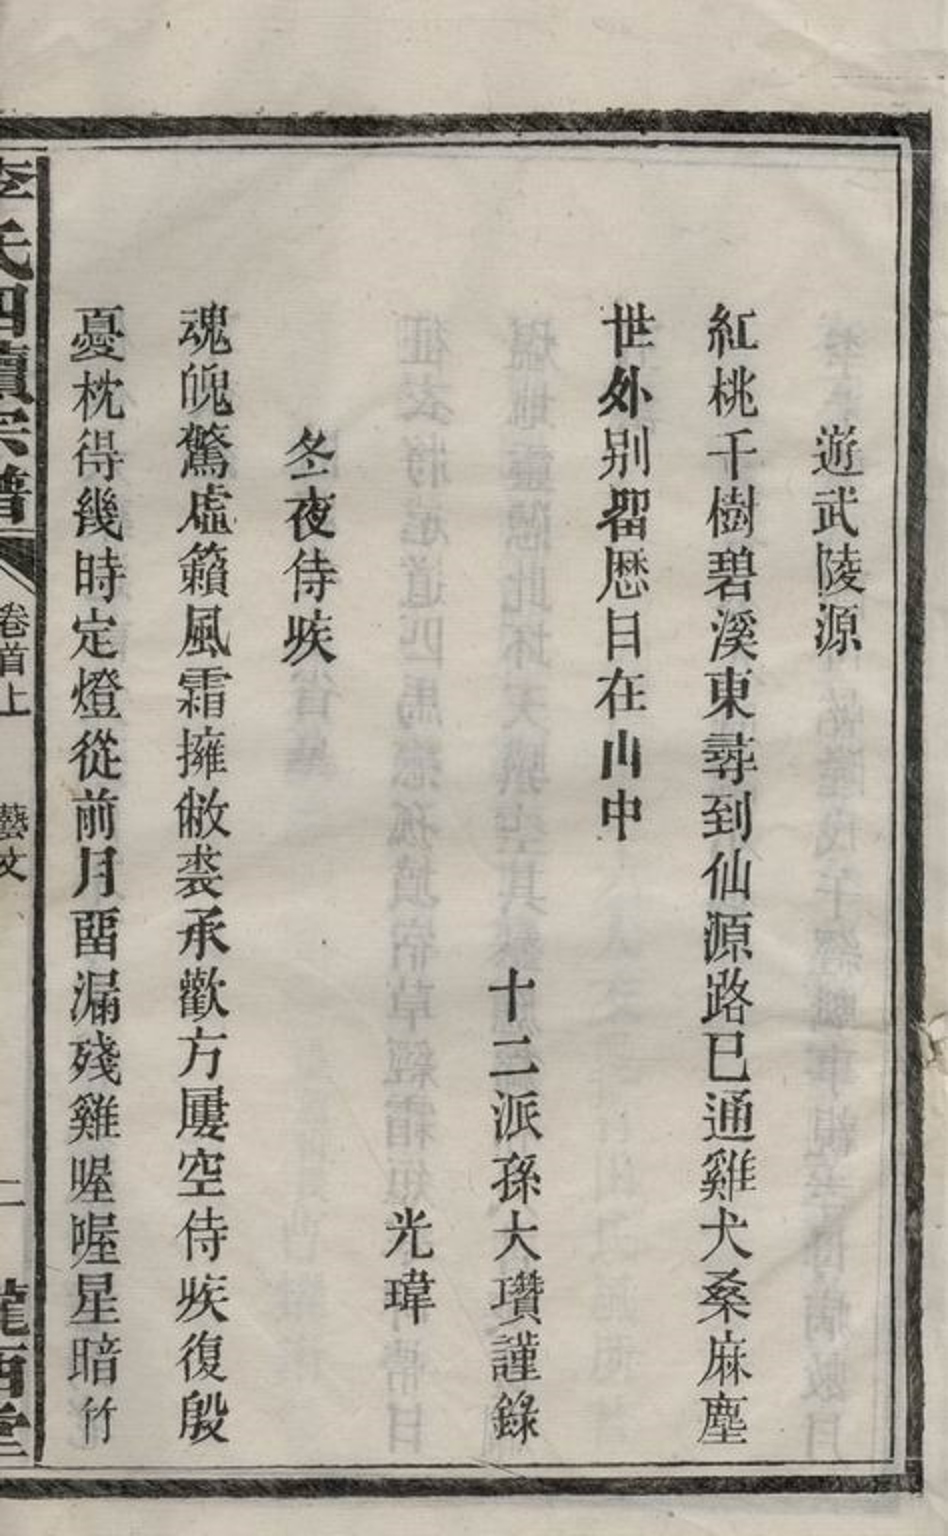 遊武陵源
紅桃千樹碧溪東尋到仙源路已通雞犬桑麻塵
世外別畱厯日在山中
十二派孫大瓚謹錄
光瑋
冬夜侍疾
魂魄驚虛籟風霜擁敝裘承歡方屢空侍疾復殷
憂枕得幾時定燈從前月畱漏殘雞喔喔星暗竹
李氏四續宗譜
卷首上
藝文
二
隴西堂